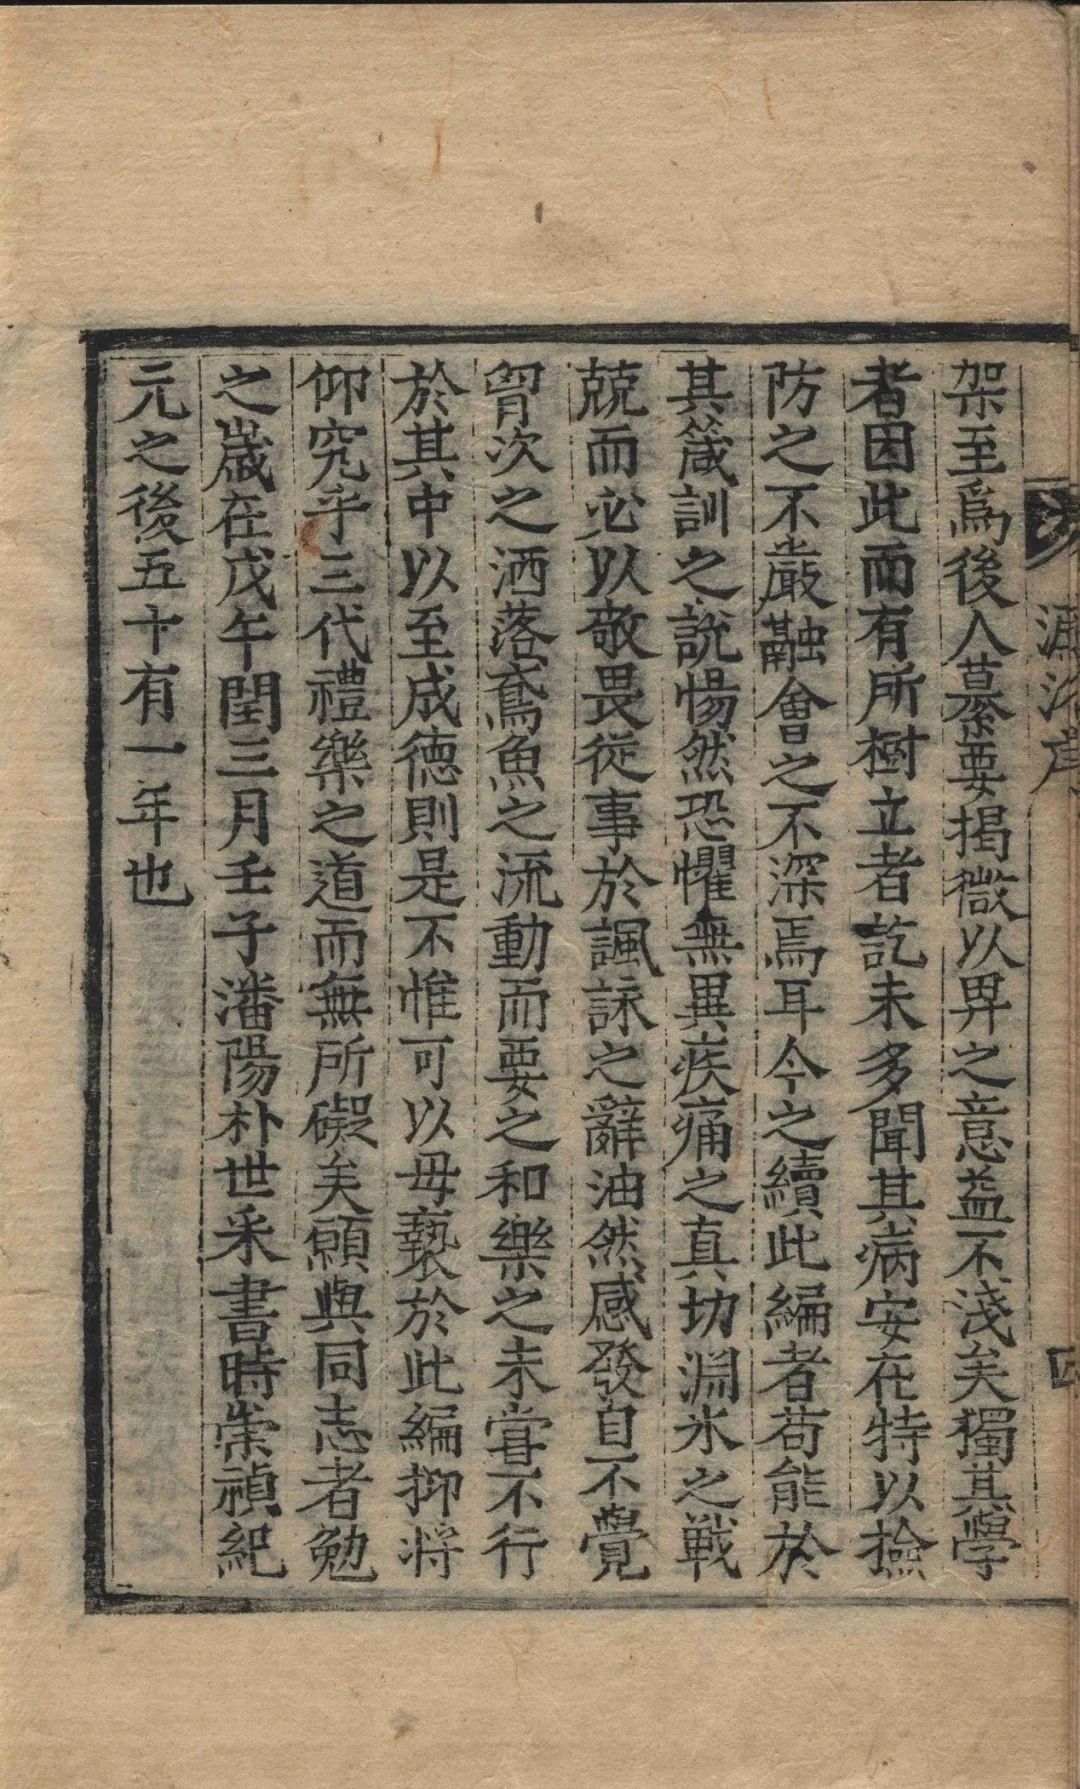 濂洛序
四
架至爲後人纂要揭微以畀之意益不淺矣獨其學
者因此而有所樹立者訖未多聞其病安在特以撿
防之不嚴融會之不深焉耳今之續此編者苟能於
其箴訓之說惕然恐懼無異疾痛之真切淵氷之戰
兢而必以敬畏從事於諷詠之辭油然感發自不覺
胷次之洒落鳶魚之流動而要之和樂之未甞不行
於其中以至成德則是不惟可以毋褻於此編抑將
仰究乎三代禮樂之道而無所礙矣願與同志者勉
之歲在戊午閏三月壬子潘陽朴世采書時崇禎紀
元之後五十有一年也